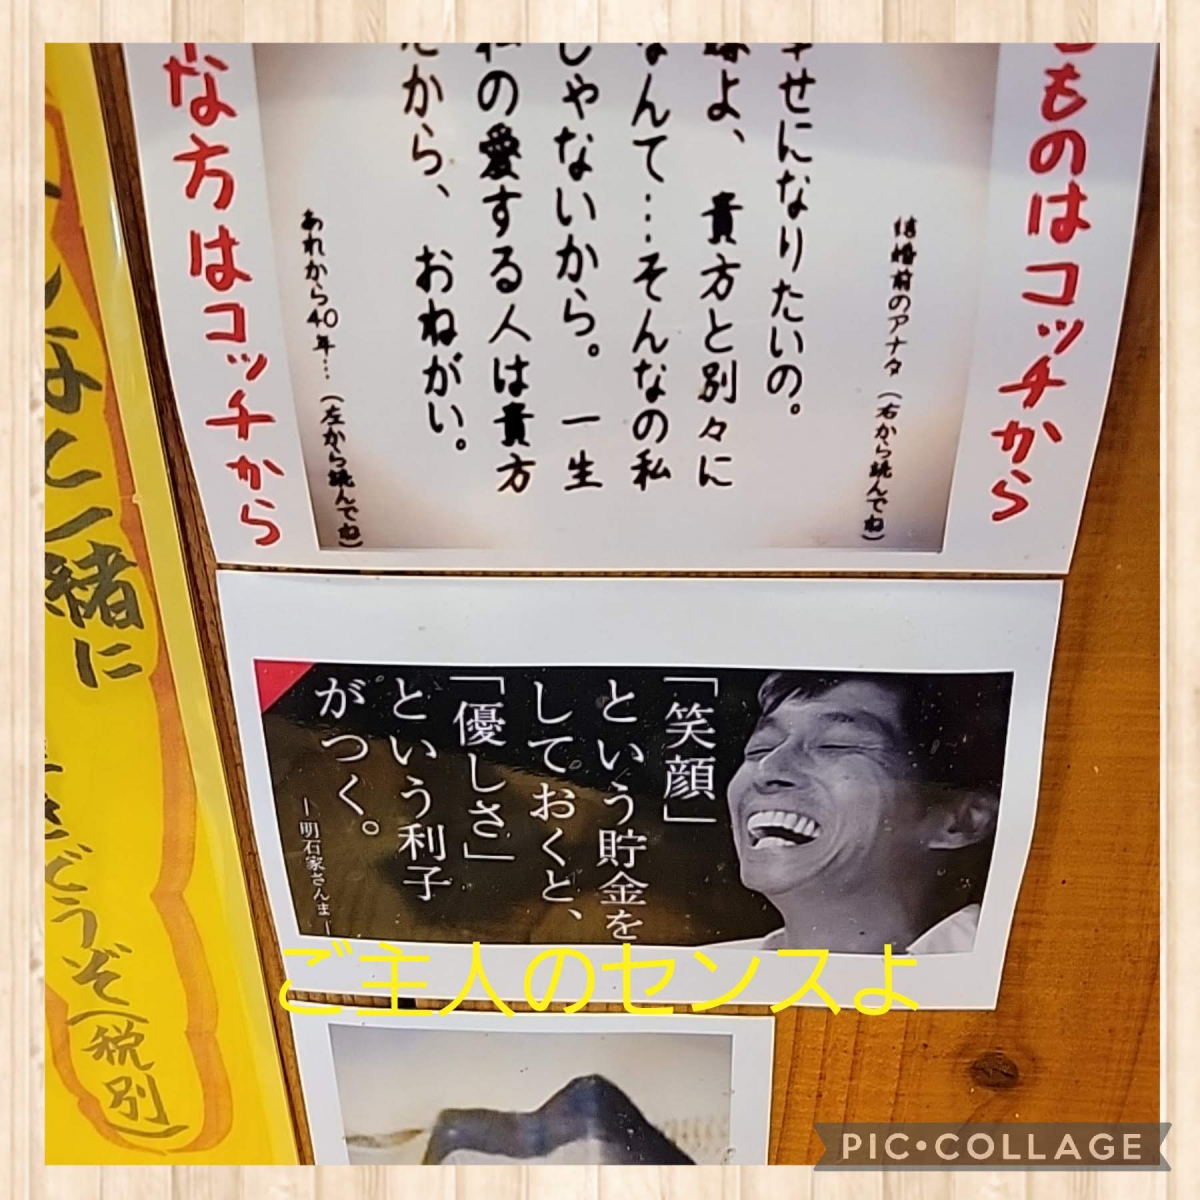 ものはコッチから
結婚前のアナタ(右から読んでね)
幸せになりたいの。
嫌よ、貴方と別々に
なんて…そんなの私
じゃないから。一生
私の愛する人は貴方
だから、おねがい。
あれから40年…(左から読んでね)
な方はコッチから
「笑顔」
という貯金を
しておくと、
「優しさ」
という利子
がつく。
―明石家さんま―
一緒に
どうぞ(税別)
ご主人のセンスよ
PIC•COLLAGE